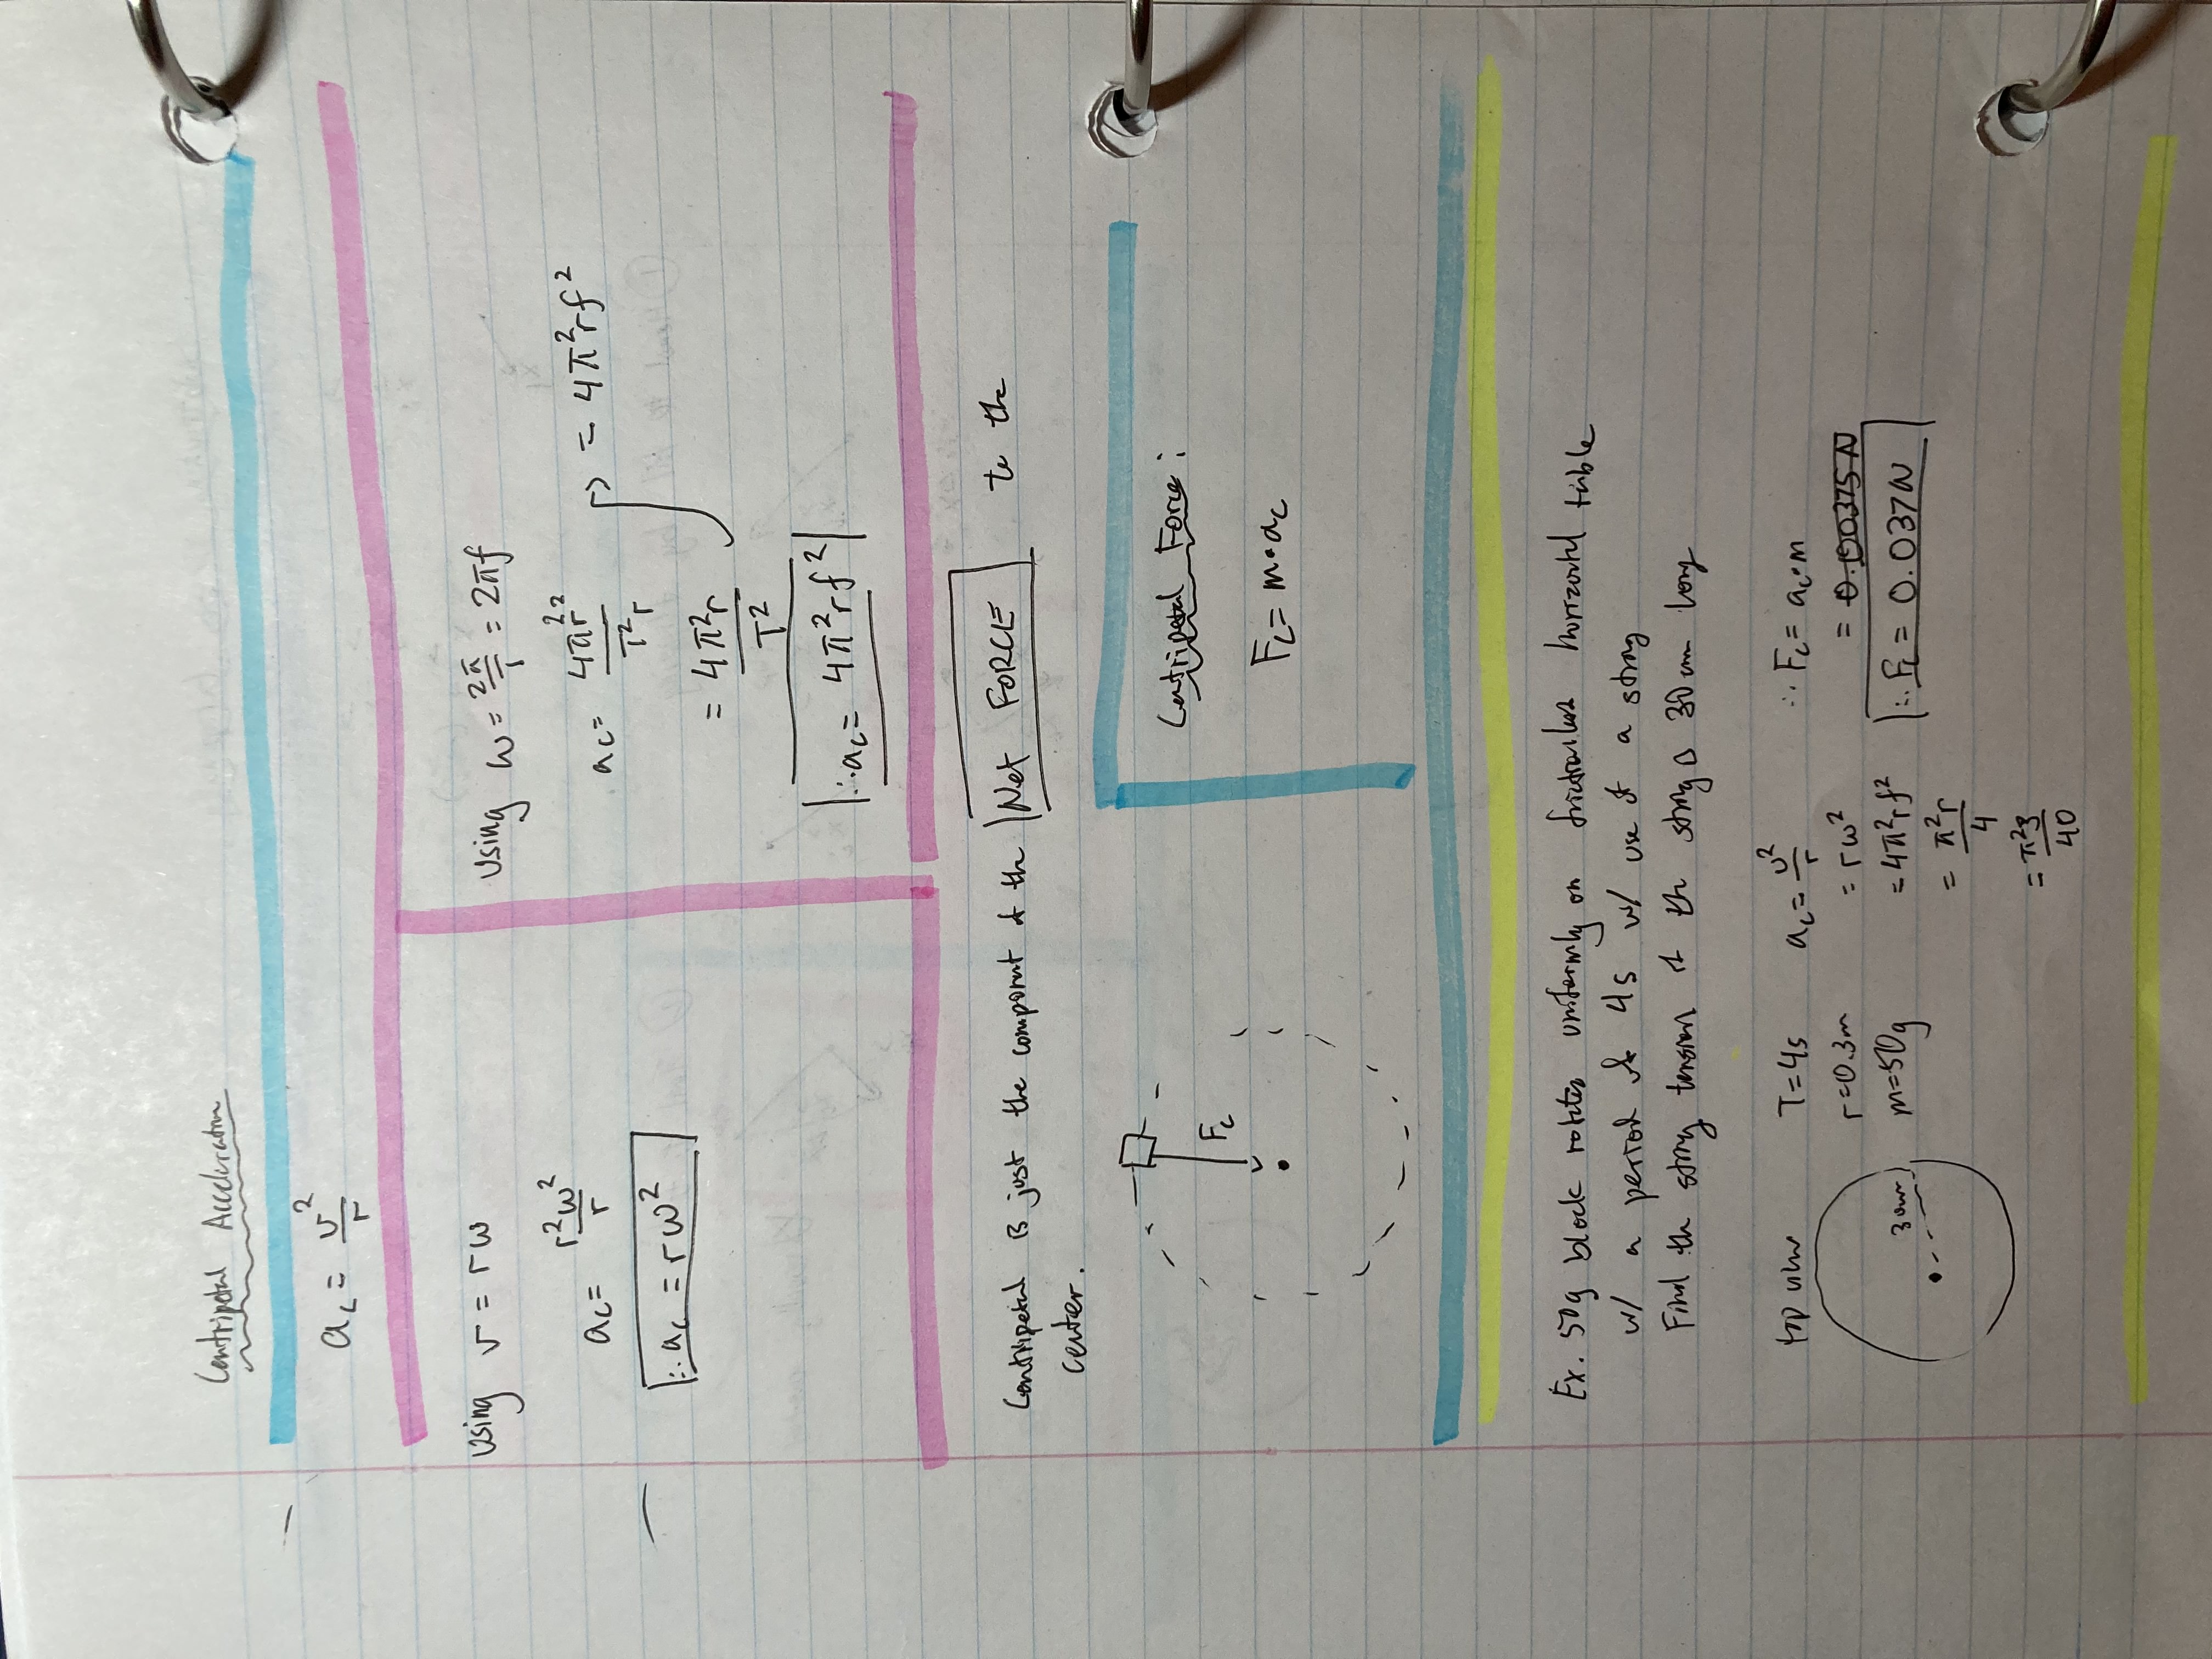 Centripetal Acceleration
a_c = v²/r
using v = rω
a_c = r²ω²/r
∴ a_c = rω²
Using ω = 2π/T = 2πf
a_c = 4π²r²/T²r
= 4π²r/T² → = 4π²rf²
∴ a_c = 4π²rf²
Centripetal is just the component of the Net FORCE to the
center.
F_c
Centripetal Force:
F_c = m·a_c
Ex. 50g block rotates uniformly on frictionless horizontal table
w/ a period of 4s w/ use of a string
Find the string tension if the string is 30cm long
top view
30cm
T=4s
r=0.3m
m=50g
a_c = v²/r
= rω²
= 4π²rf²
= π²r/4
= π²3/40
∴ F_c = a_c·m
= 0.00375N
∴ F_c = 0.037N